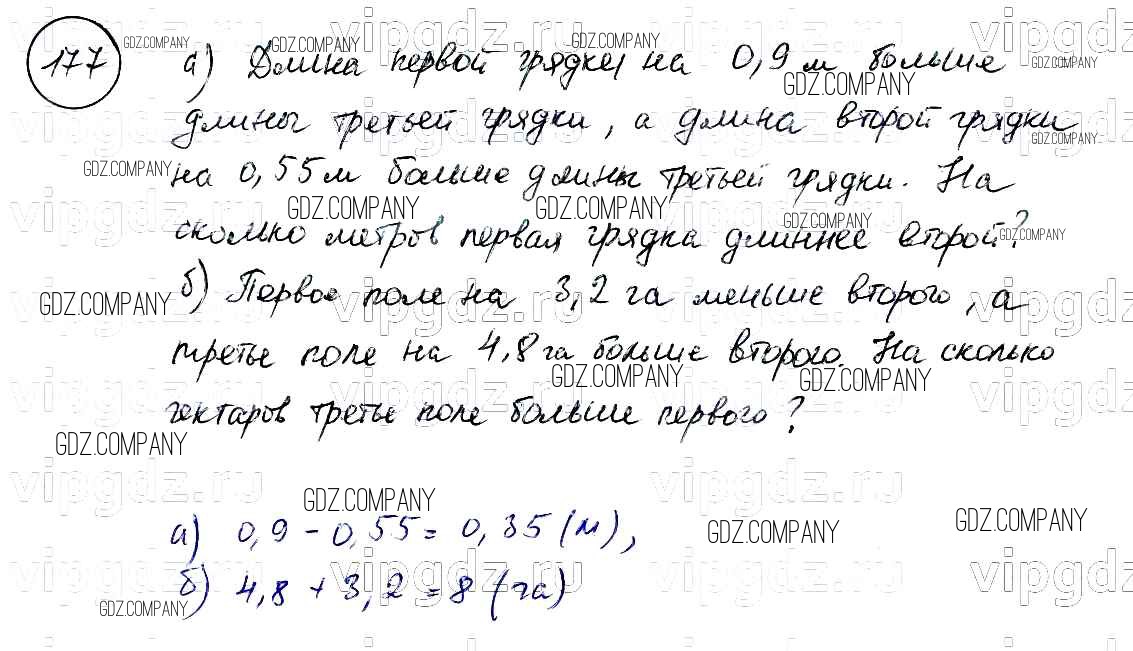 177
а) Длина первой грядки на 0,9 м больше
длины третьей грядки, а длина второй грядки
на 0,55 м больше длины третьей грядки. На
сколько метров первая грядка длиннее второй?
б) Первое поле на 3,2 га меньше второго, а
третье поле на 4,8 га больше второго. На сколько
гектаров третье поле больше первого?
а) 0,9 - 0,55 = 0,35 (м),
б) 4,8 + 3,2 = 8 (га)
vipgdz.ru
GDZ.COMPANY